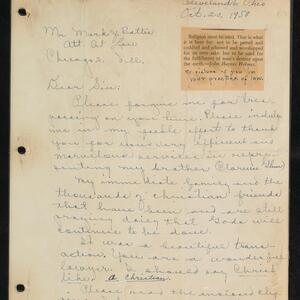 Cleveland 6, Ohio
Oct. 20, 1958
Mr. Mark J. Satter
Att. At Law
Chicago 2, Ill.
Religion must be used. That is what
it is here for: not to be petted and
coddled and adorned and worshipped
for its own sake, but to be used for
the fulfillment of man's destiny upon
the earth. —John Haynes Holmes.
My vision of you in
your practice of law.
Dear Sir:
Please forgive me for tres
passing on your time. Please indulge
me in my feeble effort to thank
you for your very different and
marvelous services in repre
senting my brother Clarence
My immediate family and the
thousands of christian friends
that have been and are still
praying daily that God's will
continue to be done.
It was a beautiful trans
action. You are a wonderful
lawyer. I should say Christ
like. a Christian
Please read the enclosed clip